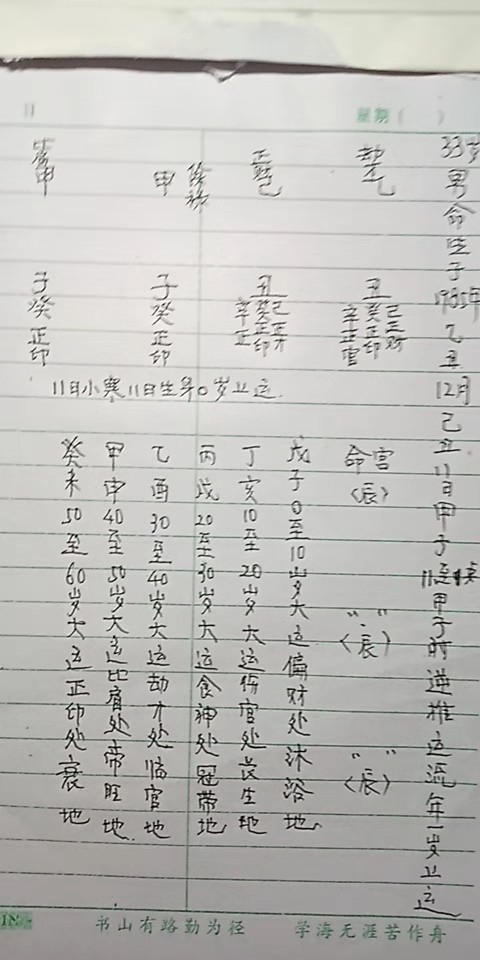 星期( )
33岁男命生于1985年乙丑12月己丑11日甲子11点甲子时逆推运流年一岁上运
劫才乙
正财己
徐祿
甲
甲
丑
辛癸己
正正正
官印财
丑
辛癸己
正正正
印才
子
癸
正印
子
癸
正印
11日小寒11日生算0岁上运.
命宫
(辰)
(辰)
(辰)
戊子0至10岁大运偏财处沐浴地
丁亥10至20岁大运伤官处长生地
丙戌20至30岁大运食神处冠带地
乙酉30至40岁大运劫才处临官地
甲申40至50岁大运比肩处帝旺地.
癸未50至60岁大运正印处衰地
书山有路勤为径 学海无涯苦作舟